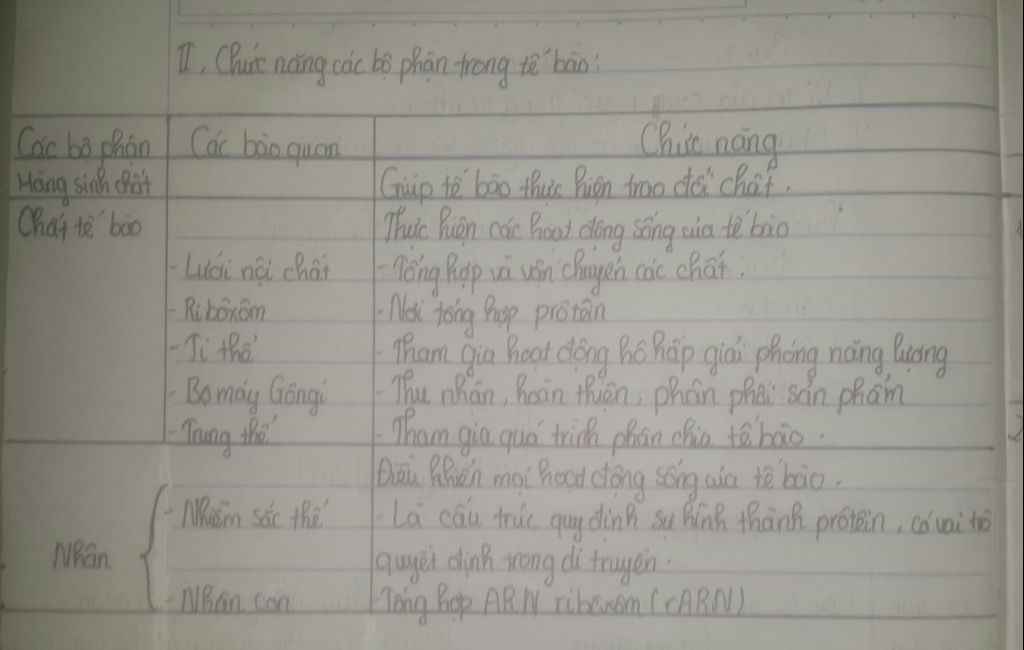 II, Chức năng các bộ phận trong tế bào:
Các bộ phận Các bào quan Chức năng
Màng sinh chất Giúp tế bào thực hiện trao đổi chất.
Chất tế bào Thực hiện các hoạt động sống của tế bào
- Lưới nội chất - Tổng hợp và vận chuyển các chất.
- Ribôxôm - Nơi tổng hợp prôtêin
- Ti thể - Tham gia hoạt động hô hấp giải phóng năng lượng
- Bộ máy Gôngi - Thu nhận, hoàn thiện, phân phối sản phẩm
- Trung thể - Tham gia quá trình phân chia tế bào.
Điều khiển mọi hoạt động sống của tế bào.
- Nhiễm sắc thể - Là cấu trúc quy định sự hình thành prôtêin, có vai trò
Nhân quyết định trong di truyền.
- Nhân con Tổng hợp ARN ribôxôm (rARN)